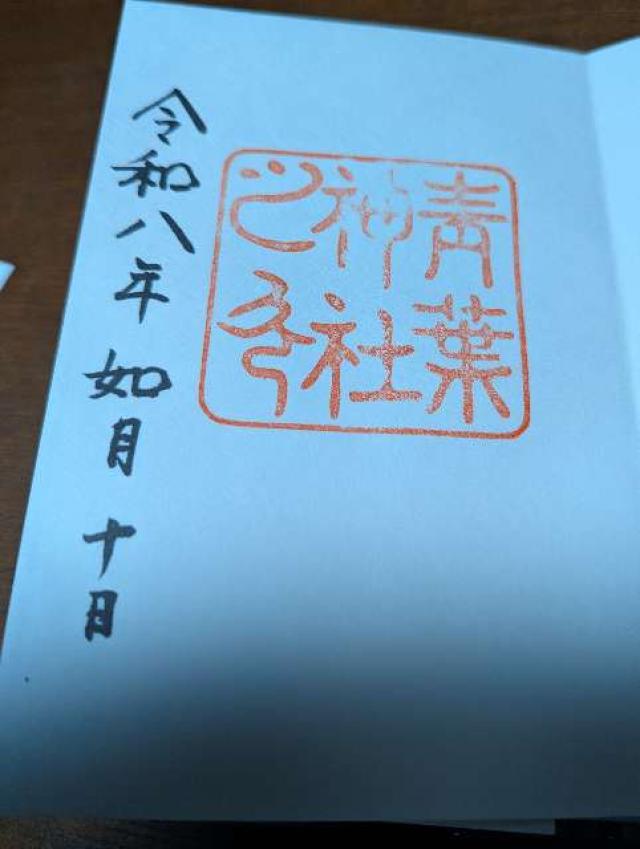 青葉
神社
之印
令和八年 如月 十日